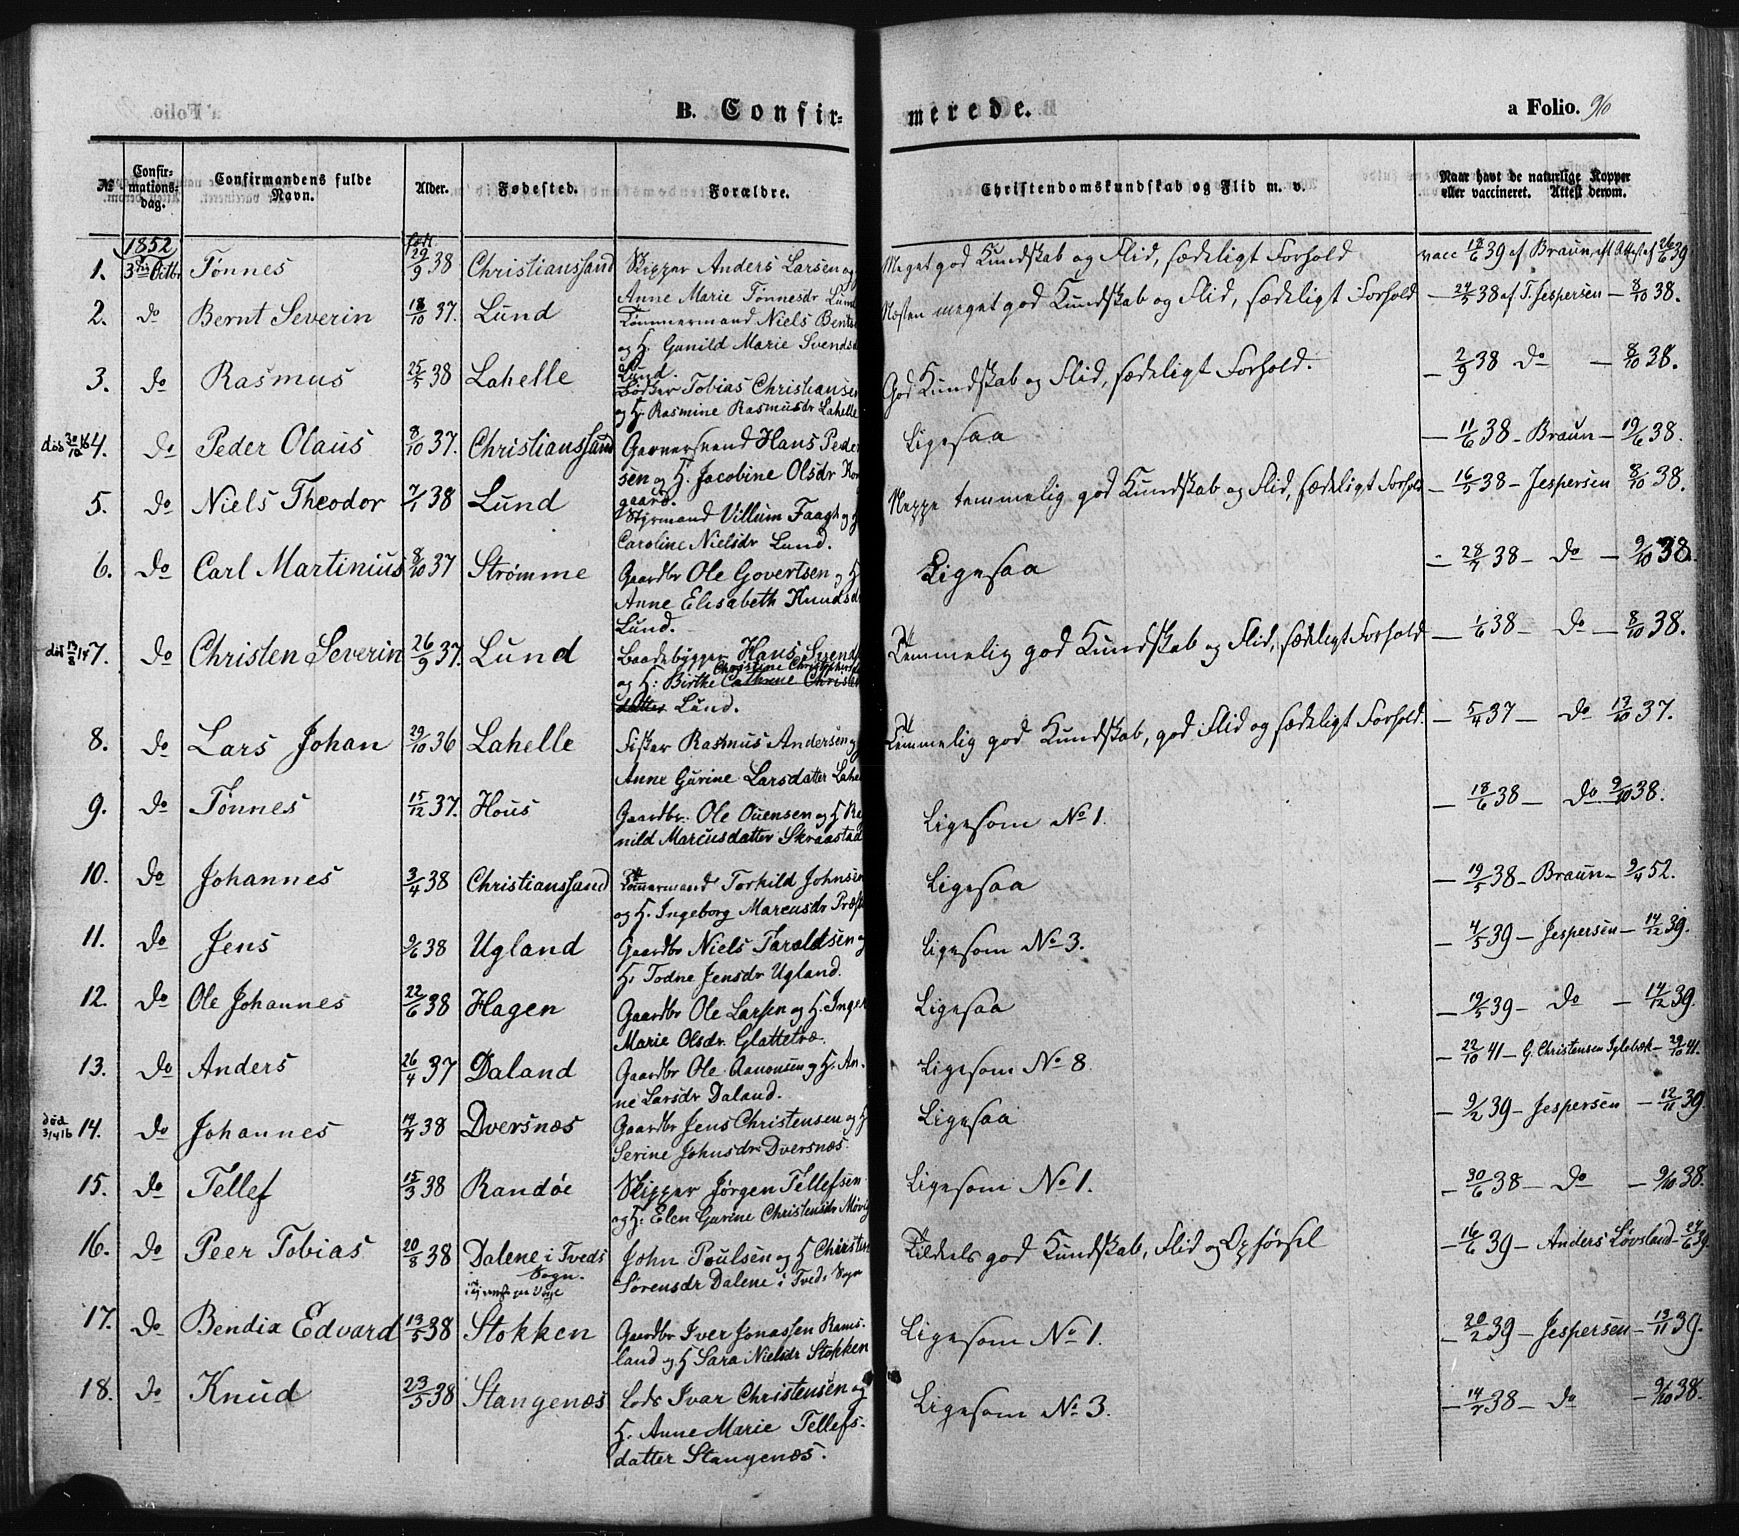 B. Confirmerede.
a Folio. 96
№
Confirmations-dag.
Confirmandens fulde Navn.
Alder.
Fødested.
Forældre.
Christendomskundskab og Flid m. v.
Naar havt de naturlige Kopper eller vaccineret. Attest derom.
1852
1. 3die Octbr Tønnes født 29/9 38 Christianssand Skipper Anders Larsen og
Anne Marie Tønnesdr Lund
Meget god Kundskab og Flid, sædeligt Forhold vacc 18/6 39 af Braun, Attest af 26/6 39
2. do Bernt Severin 18/10 37. Lund Tømmermand Niels Bents
og H. Gunild Marie Svends
Lund.
Næsten meget god Kundskab og Flid, sædeligt Forhold — 24/5 38 af T. Jespersen — 8/10 38.
3. do Rasmus 25/5 38 Lahelle Bødker Tobias Christiansen
og H. Rasmine Rasmusdr Lahelle
God Kundskab og Flid, sædeligt Forhold. — 2/9 38 do — 8/10 38.
4. do Peder Olaus 8/10 37. Christianssand Hans Peder
sen og H. Jacobine Olsdr Kon
gaard.
Ligesaa — 11/6 38 — Braun — 19/6 38.
5. do Niels Theodor 7/1 38 Lund Styrmand Villum Faagh og H
Caroline Nielsdr Lund.
Neppe temmelig god Kundskab og Flid, sædeligt Forhold — 16/5 38 — Jespersen 8/10 38.
6. do Carl Martinius 8/10 37 Strømme Gaardbr Ole Govertsen og H
Anne Elisabeth Knudsd
Lund.
Ligesaa — 28/7 38 — do — 9/10 38.
7. do Christen Severin 26/9 37. Lund Baadebygger Hans Svends
Christine Christophersd
og H: Birthe Cathrine Christen
datter Lund.
Temmelig god Kundskab og Flid, sædeligt Forhold — 1/6 38 — do — 8/10 38.
8. do Lars Johan 29/10 36 Lahelle Fisker Rasmus Andersen og
Anne Gurine Larsdatter Lahe
Temmelig god Kundskab, god Flid og sædeligt Forhold. — 5/4 37 — do 13/10 37.
9. do Tønnes 15/12 37. Hous Gaardbr. Ole Ouensen og H Ra
nild Marcusdatter Skraastad
Ligesom No 1. — 18/6 38 — do 9/10 38.
10. do Johannes 3/4 38 Christianssand Tømmermand Torkild Johnsen
og H. Ingeborg Marcusdr Præst
Ligesaa — 19/5 38 — Braun — 9/4 52.
11. do Jens 9/6 38 Ugland Gaardbr Niels Taraldsen og
H. Todne Jensdr Ugland.
Ligesom No 3. — 4/5 39 — Jespersen — 14/12 39.
12. do Ole Johannes 22/6 38 Hagen Gaardbr Ole Larsen og H. Inger
Marie Olsdr. Glattetræ.
Ligesaa — 19/5 39 — do — 14/12 39.
13. do Anders 26/4 37 Daland Gaardbr Ole Aanonsen og H. An-
ne Larsdr Daland.
Ligesom No 8. — 22/10 41 — G. Christensen — 29/10 41.
død
14. do Johannes 38 Dversnæs Gaardbr Jens Christensen og H
Serine Johnsdr Dversnæs.
Ligesaa — 9/2 39 — Jespersen — 12/11 39.
15. do Tellef 15/3 38 Randøe Skipper Jørgen Tellefsen
og H: Elen Gurine Christensdr Møvig
Ligesom No 1. — 30/6 38 — do — 9/10 38.
16. do Peer Tobias 20/8 38 Dalene i Tveds
Sogn.
John Poulsen og H Christin
Sørensdr Dalene i Tveds Sogn
Tildeels god Kundskab, Flid og Opførsel — 16/6 39 — Anders Løvsland — 24/6 39
17. do Bendix Edvard 19/5 38 Stokken Gaardbr Iver Jonassen Rams-
land og H Sara Nielsdr Stokken
Ligesom No 1. — 20/2 39 — Jespersen — 13/11 39.
18. do Knud 23/5 38 Stangenæs Lods Ivar Christensen og
H. Anne Marie Tellefs-
datter Stangenæs.
Ligesom No 3. — 14/7 38 — do — 9/10 38.